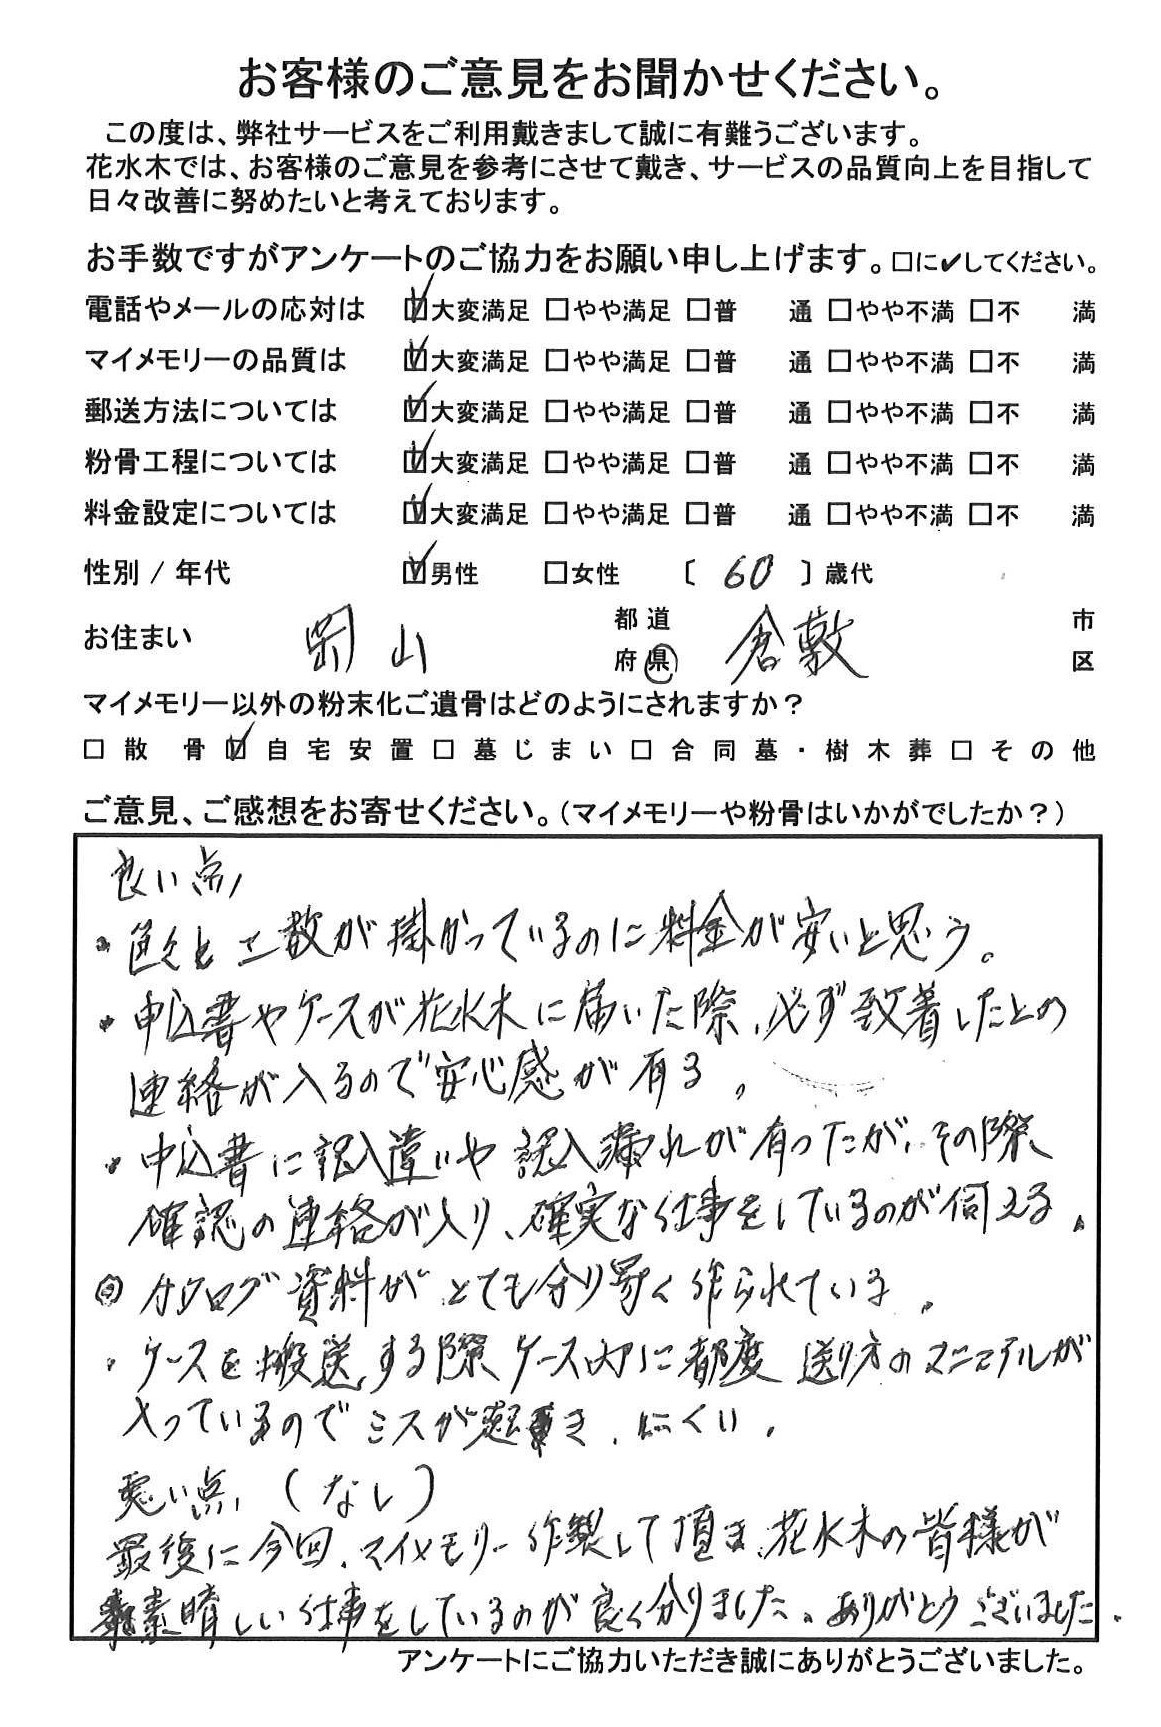 お客様のご意見をお聞かせください。
この度は、弊社サービスをご利用戴きまして誠に有難うございます。
花水木では、お客様のご意見を参考にさせて戴き、サービスの品質向上を目指して
日々改善に努めたいと考えております。
お手数ですがアンケートのご協力をお願い申し上げます。□に✔してください。
電話やメールの応対は ☑大変満足 □やや満足 □普 通 □やや不満 □不 満
マイメモリーの品質は ☑大変満足 □やや満足 □普 通 □やや不満 □不 満
郵送方法については ☑大変満足 □やや満足 □普 通 □やや不満 □不 満
粉骨工程については ☑大変満足 □やや満足 □普 通 □やや不満 □不 満
料金設定については ☑大変満足 □やや満足 □普 通 □やや不満 □不 満
性別 / 年代 ☑男性 □女性 〔 60 〕歳代
お住まい 岡山 都道府県 倉敷 市区
マイメモリー以外の粉末化ご遺骨はどのようにされますか？
□散骨 ☑自宅安置 □墓じまい □合同墓・樹木葬 □その他
ご意見、ご感想をお寄せください。（マイメモリーや粉骨はいかがでしたか？）
良い点
・色々と工数が掛かっているのに料金が安いと思う。
・申込書やケースが花水木に届いた際、必ず致着したとの
連絡が入るので安心感が有る。
・申込書に記入違いや記入漏れが有ったが、その際
確認の連絡が入り、確実な仕事をしているのが伺える。
・カタログ資料がとても分り易く作られている。
・ケースを搬送する際ケース内に都度送り方のマニュアルが
入っているのでミスが起きにくい。
悪い点（なし）
最後に今回、マイメモリー作製して頂き、花水木の皆様が
素晴しい仕事をしているのが良く分りました。ありがとうございました。
アンケートにご協力いただき誠にありがとうございました。